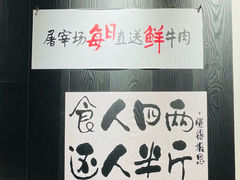 屠宰场每日直送鲜牛肉
食人四两
还人半斤